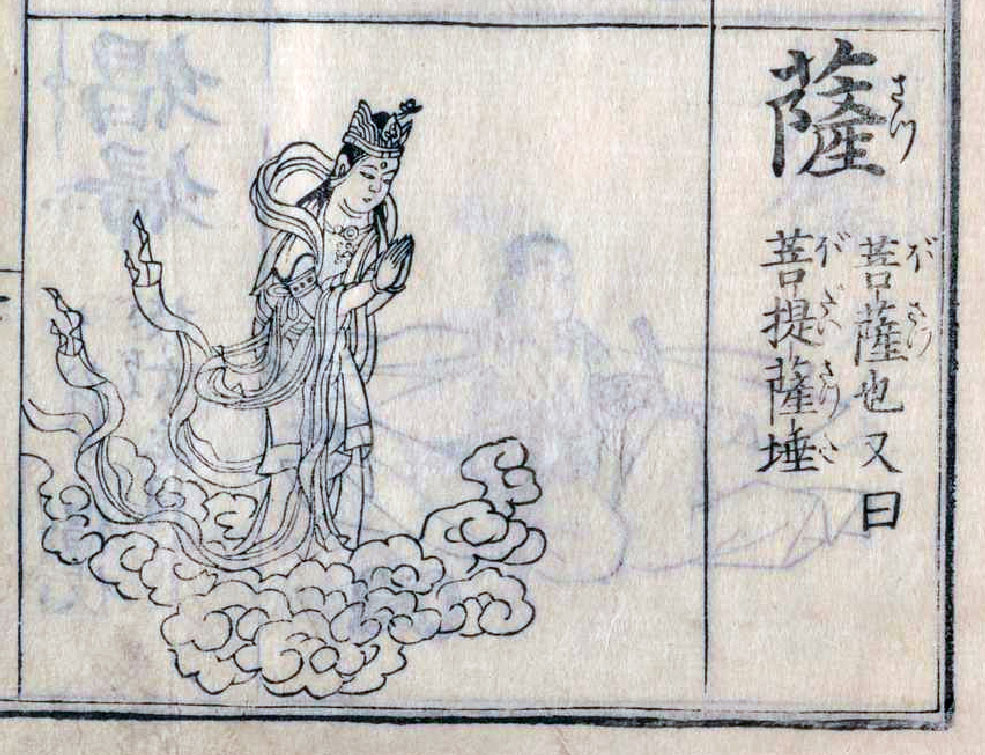 薩 さつ
菩薩也又曰 ぼさつ
菩提薩埵 ぼだいさつた